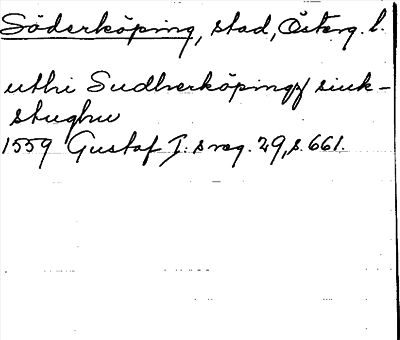 Söderköping, stad, Österg. l.
uthi Sudherköpings siuk-
stughu
1559 Gustaf I:s reg. 29, s. 661.